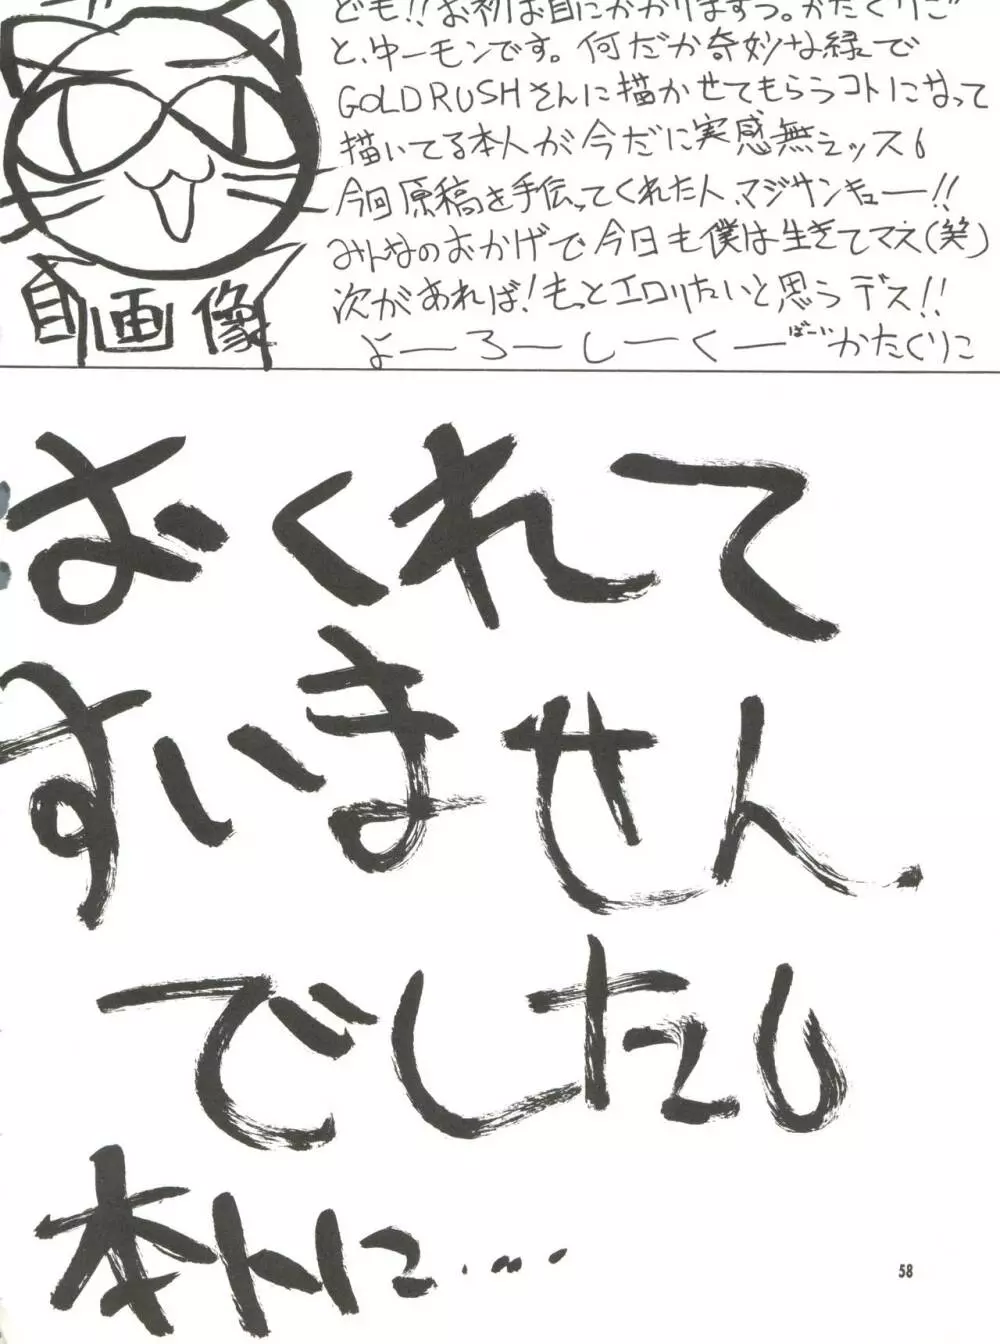 ども!!お初お目にかかりますっ。かたくりこ
と、中ーモンです。何だか奇妙な縁で
GOLD RUSHさんに描かせてもらうコトになって
描いてる本人が今だに実感無えッス6
今回原稿を手伝ってくれた人、マジサンキュー!!
みんなのおかげで今日も僕は生きてマス(笑)
次があれば!もっとエロりたいと思うデス!!
よーろーしーくーばーいかたくりこ
自画像
おくれて
すいません
でした6
本トに・・・・・
58